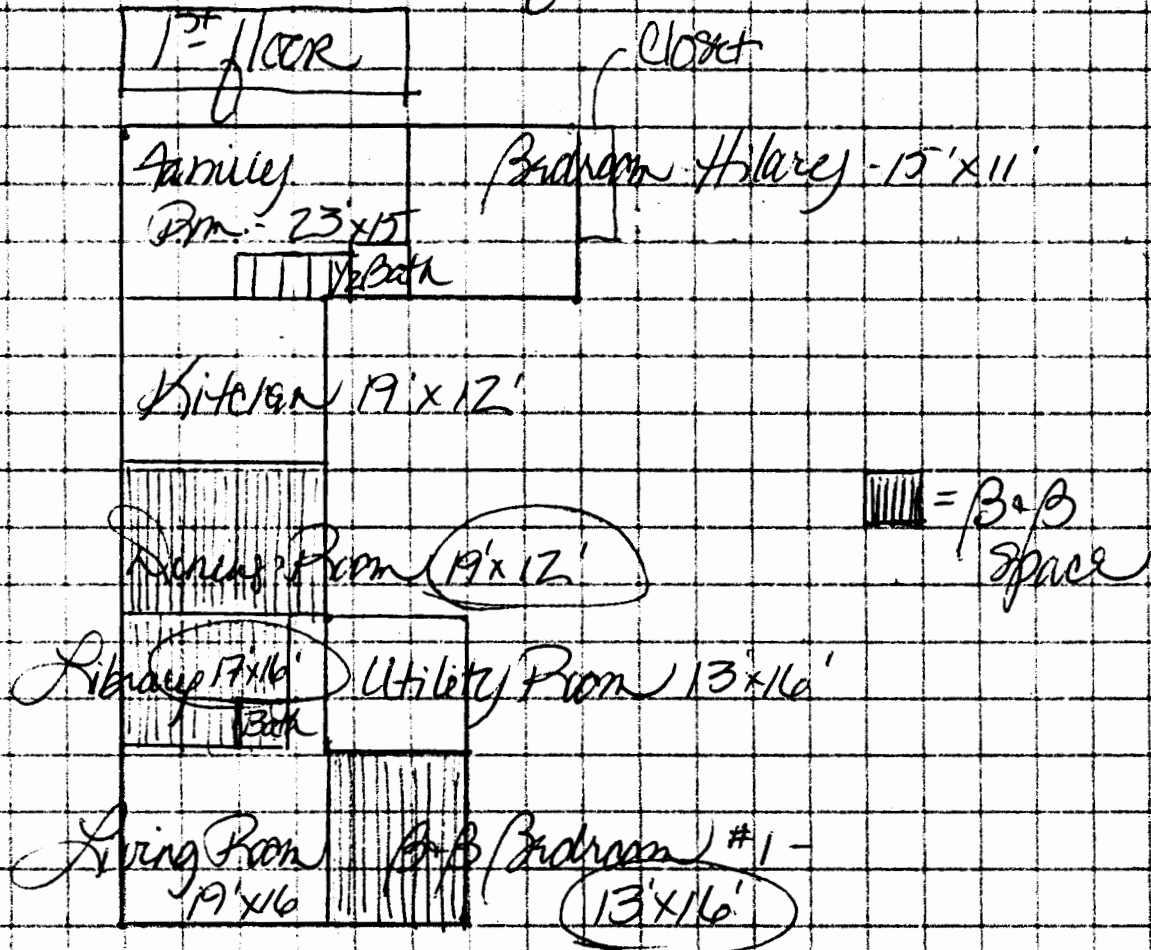 1st floor
Closet
Family
Rm. - 23'x15
Bedroom Hilary - 15'x11'
1/2 Bath
Kitchen 19'x12'
= B&B
space
Dining Room 19'x12'
Library 17'x16'
Utility Room 13'x16'
Bath
Living Room
19'x16
B&B Bedroom #1 -
13'x16'